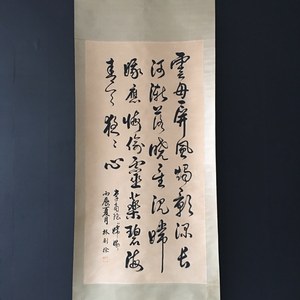 雲母屏風燭影深長
河漸落曉星沈嫦
娥應悔偷靈藥碧海
青天夜々心
李商隱嫦娥
丙辰夏月林則徐